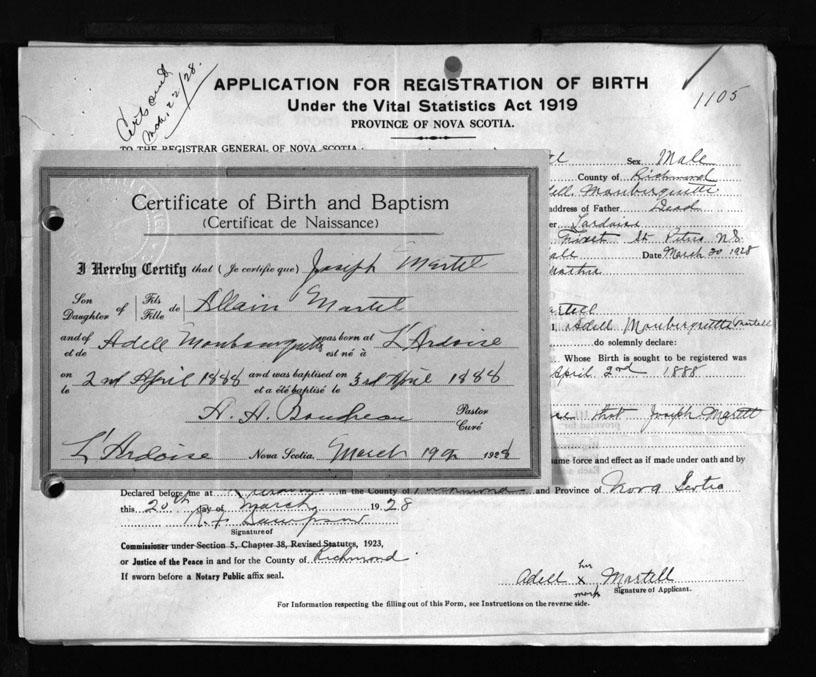 Mch. 22/28.
APPLICATION FOR REGISTRATION OF BIRTH
Under the Vital Statistics Act 1919
PROVINCE OF NOVA SCOTIA.
1105
TO THE REGISTRAR GENERAL OF NOVA SCOTIA:
Sex Male
County of Richmond
dell Mauberguette
address of Father Dead
er Lardoise
St Peters N S
ale Date March 20 1928
artell
Adell Mauberguette Martell
do solemnly declare:
Whose Birth is sought to be registered was
April 2nd 1888
that Joseph Martell
ame force and effect as if made under oath and by
Certificate of Birth and Baptism
(Certificat de Naissance)
I Hereby Certify that (Je certifie que) Joseph Martel
Son Daughter of Fils Fille de Allain Martel
and of et de Adell Monbourquette was born at est né à L'Ardoise
on le 2nd April 1888 and was baptised on et a été baptisé le 3rd April 1888
A. A. Boudreau Pastor Curé
L'Ardoise Nova Scotia, March 19th 1928
Declared before me at in the County of Richmond and Province of Nova Scotia
this 20th day of March 1928
Signature of
Commissioner under Section 5, Chapter 38, Revised Statutes, 1923,
or Justice of the Peace in and for the County of Richmond.
If sworn before a Notary Public affix seal.
Adell her x mark Martell
Signature of Applicant.
For Information respecting the filling out of this Form, see Instructions on the reverse side.